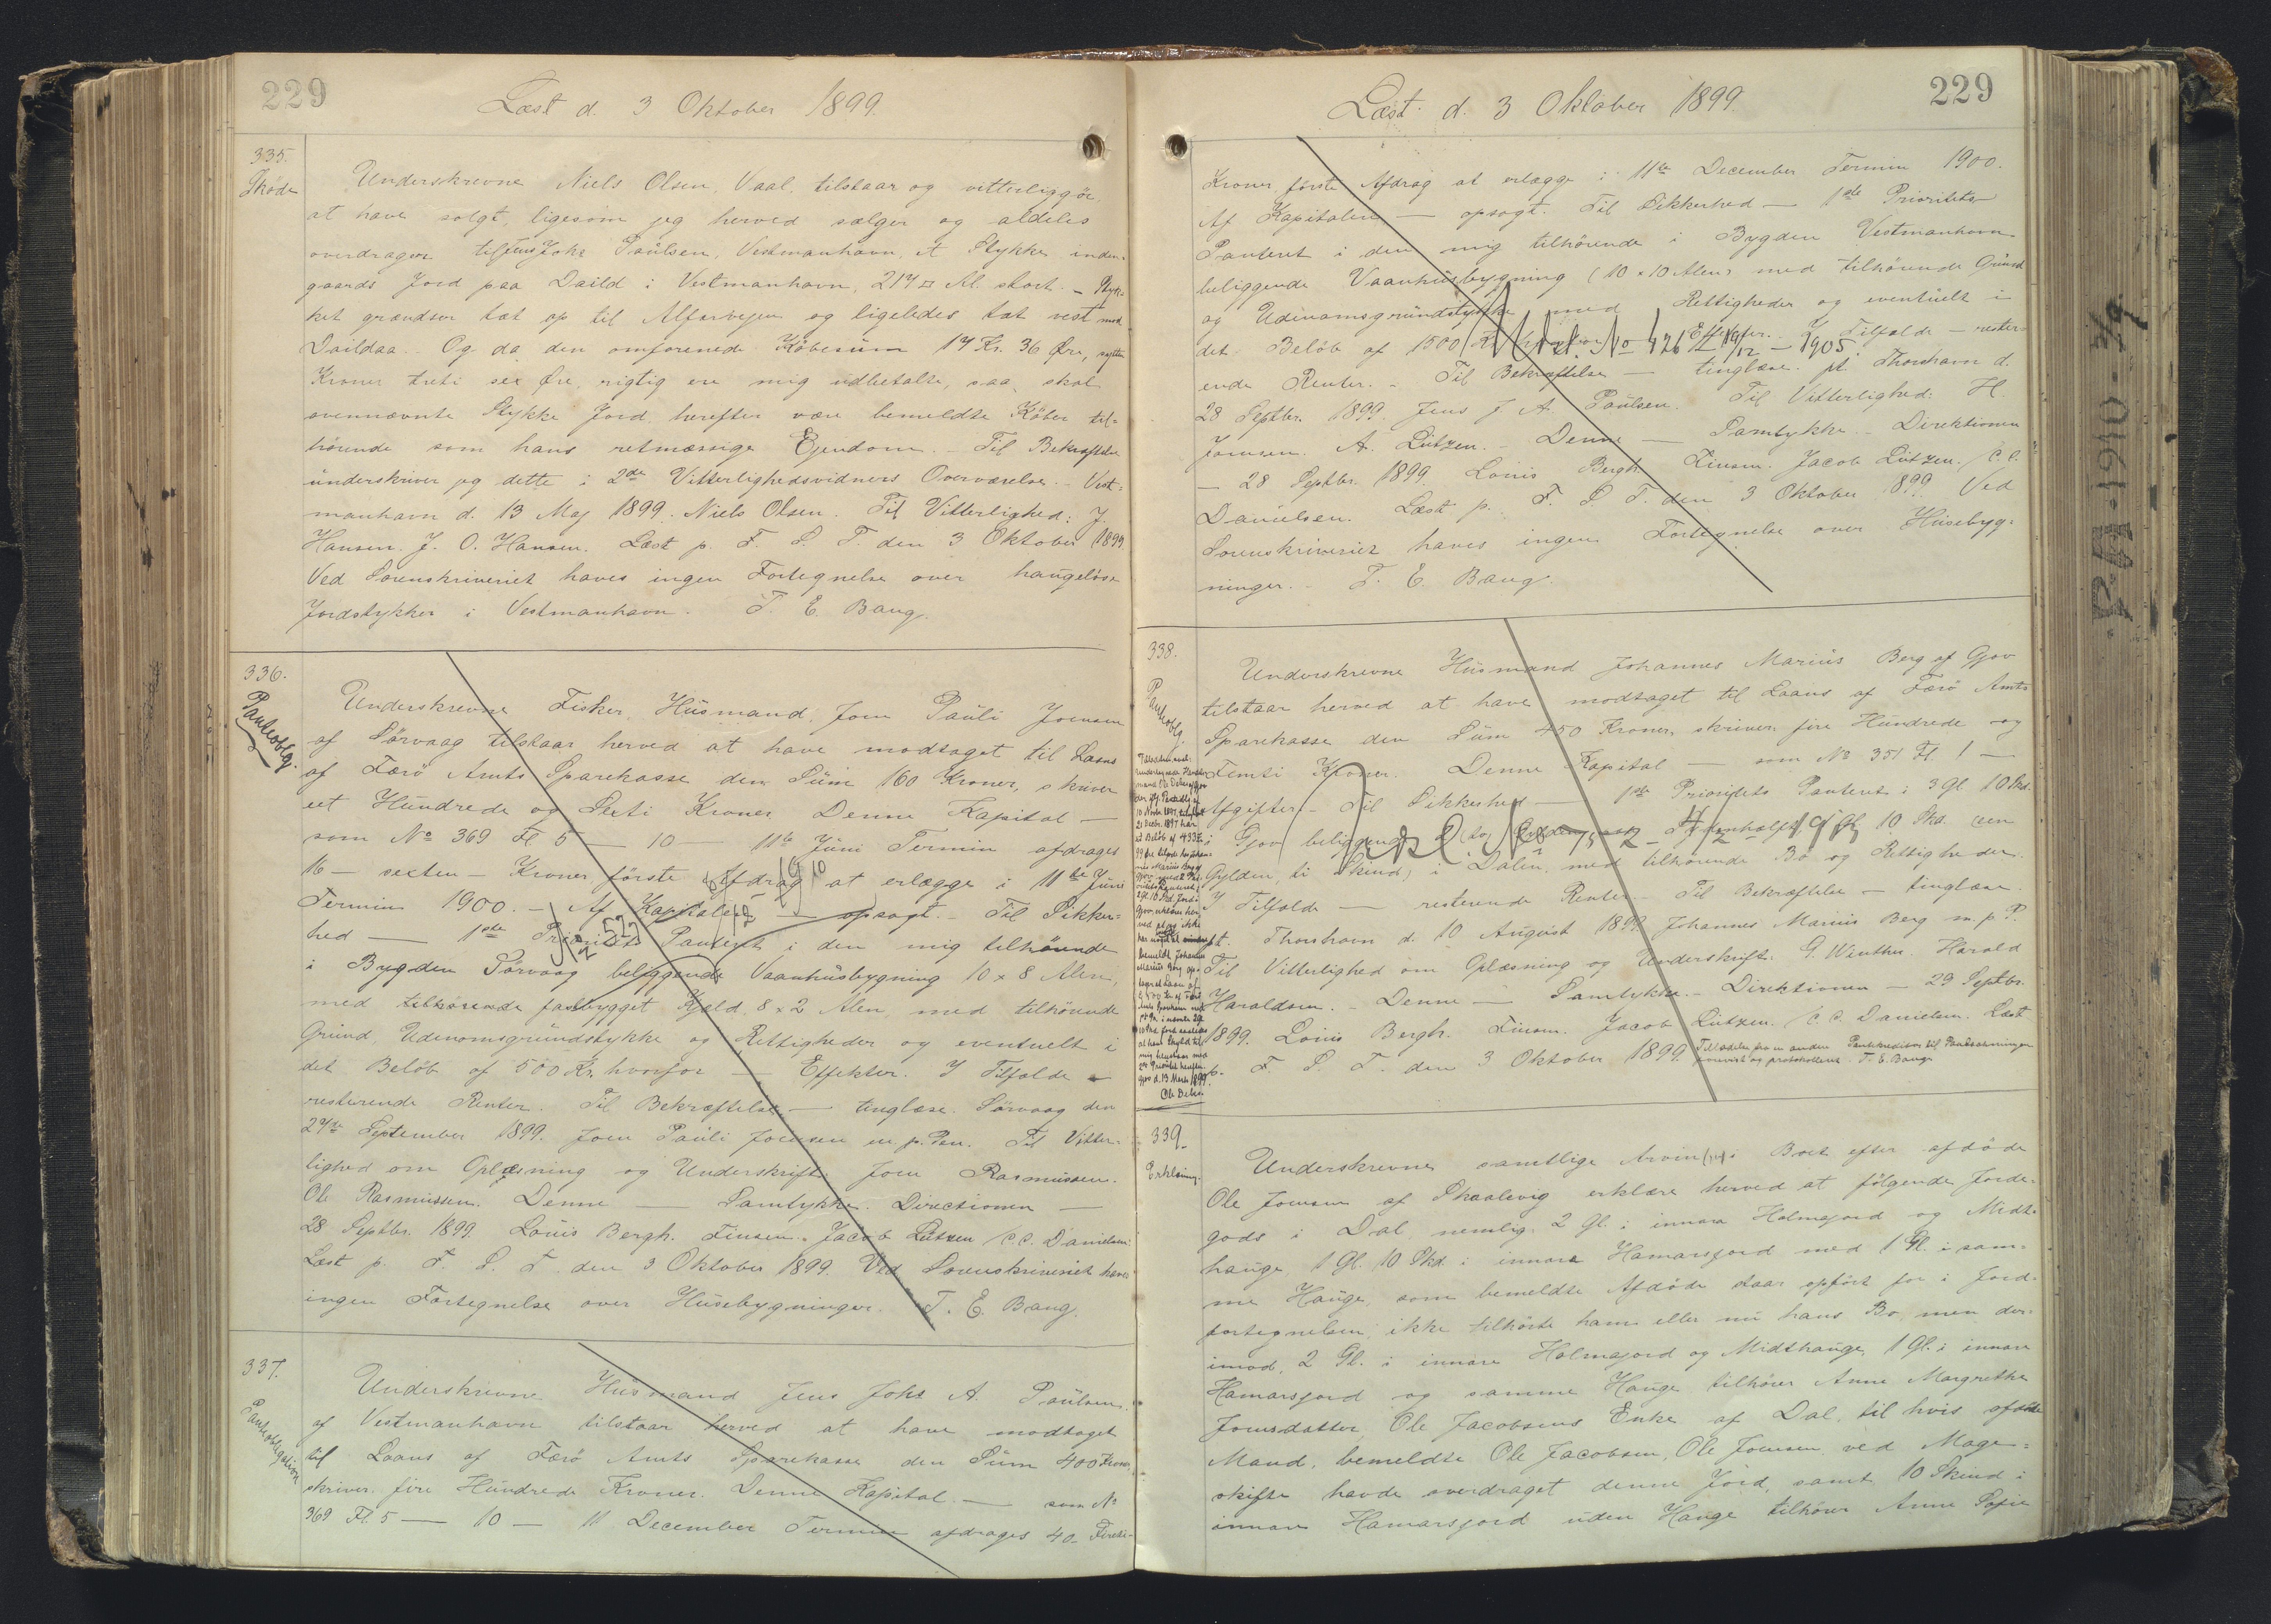 229
Læst d. 3 Oktober 1899.
335.
Skøde
Underskrevne Niels Olsen, Vaal, tilstaar og vitterliggör,
at have solgt, ligesom jeg herved sælger og aldeles
overdrager til Jens Johs Paulsen, Vestmanhavn, et Stykke inden-
gaards Jord paa Daild i Vestmanhavn, 217 □ Al. stort. - Styk-
ket grændser tæt op til Alfarvejen og ligeledes tæt vest med
Daildaa. Og da den omforenede Köbesum 17 Kr. 36 Øre, sytten
Kroner treti sex Øre, rigtig ere mig udbetalte, saa skal
ovennævnte Stykke Jord herefter være bemeldte Köber til-
hörende som hans retmæssige Ejendom. - Til Bekræftelse
underskriver jeg dette i 2de Vitterlighedsvidners Overværelse. - Vest-
manhavn d. 13 Maj 1899. Niels Olsen. Til Vitterlighed: J.
Hansen. J. O. Hansen. Læst p. F. S. T. den 3 Oktober 1899
Ved Sorenskriveriet haves ingen Fortegnelse over haugelöse
Jordstykker i Vestmanhavn. T. E. Bang.
336.
Panteoblg.
Underskrevne Fisker, Husmand Joen Pauli Joensen
af Sörvaag tilstaar herved at have modtaget til Laans
af Færö Amts Sparekasse den Sum 160 Kroner, skriver
eet Hundrede og Sexti Kroner. Denne Kapital —
som No 369 Fl 5 — 10 — 11te Juni Termin afdrages
16 - sexten - Kroner første Afdrag at erlægge i 11te Juni
Termin 1900. - Af Kapitalen — opsagt. - Til Sikker-
hed — 1ste Prioritets Panteret i den mig tilhörende
i Bygden Sörvaag beliggende Vaanhusbygning 10 x 8 Alen,
med tilhörende fastbygget Kjeld 8 x 2 Alen, med tilhörende
Grund, Udenomsgrundstykke og Rettigheder og eventuelt i
det Beløb af 500 Kr. hvorfor — Effekter. I Tilfælde —
resterende Renter. Til Bekræftelse — tinglæse. Sörvaag den
September 1899. Joen Pauli Joensen m. p. Pen. Til Vitter-
lighed om Oplæsning og Underskrift: Joen Rasmussen.
Ole Rasmussen. Denne — Samtykke. Directionen —
28 Septbr. 1899. Louis Bergh. Finsen. Jacob Lützen C. C. Danielsen.
Læst p. F. S. T. den 3 Oktober 1899. Ved Sorenskriveriet haves
ingen Fortegnelse over Husebygninger. T. E. Bang.
337.
Panteobligation
Underskrivne Husmand Jens Johs A. Paulsen
af Vestmanhavn tilstaar herved at have modtaget
til Laans af Færö Amts Sparekasse den Sum 400 Kroner,
skriver fire Hundrede Kroner. Denne Kapital — som No
369 Fl. 5 — 10 — 11 December Termin afdrages 40 -
229
Læst d. 3 Oktober 1899.
Kroner, første Afdrag at erlægge i 11te December Termin 1900.
Af Kapitalen — opsagt. Til Sikkerhed — 1ste Prioritets
Panteret i den mig tilhörende i Bygden Vestmanhavn
beliggende Vaanhusbygning (10 x 10 Alen) med tilhörende Grund
og Udenomsgrundstykke med Rettigheder og eventuelt i
det Beløb af 1500 Kr. Effekter. I Tilfælde — rester-
Udsl. No 426 19/12 - 1905
ende Renter. - Til Bekræftelse — tinglæse. pt. Thorshavn d.
28 Septbr. 1899. Jens J. A. Paulsen. Til Vitterlighed: H.
Joensen. A. Lützen. - Denne — Samtykke. Direktionen
— 28 Septbr. 1899. Louis Bergh. Finsen. Jacob Lützen. C. C.
Danielsen. Læst p. F. S. T. den 3 Oktober 1899. Ved
Sorenskriveriet haves ingen Fortegnelse over Husebyg-
ninger. - T. E. Bang.
338.
Panteoblg.
Underskrevne Husmand Johannes Marius Berg af Gjov
tilstaar herved at have modtaget til Laans af Færö Amts
Sparekasse den Sum 450 Kroner, skriver fire Hundrede og
Femti Kroner. Denne Kapital — som No 351 Fl. 1 —
Afgifter. - Til Sikkerhed — 1ste Prioritets Panteret i 3 Gl 10 Skd.
i Gjov beliggende
10 Skd. (een
Gylden, ti Skind) i Dalin, med tilhörende Bö og Rettigheder.
I Tilfælde — resterende Renter. Til Bekræftelse — tinglæse.
pt. Thorshavn d. 10 August 1899. Johannes Marius Berg m. p. P.
Til Vitterlighed om Oplæsning og Underskrift: G. Winther. Harald
Haraldsen. - Denne — Samtykke. - Direktionen — 29 Septbr.
1899. Louis Bergh. Finsen. Jacob Lützen. C. C. Danielsen. Læst
p. F. S. T. den 3 Oktober 1899. Tilladelse fra en anden Pantkreditor til Pantsætningen
forevist og protokolleret. T. E. Bang.
339.
Erklæring.
Underskrevne samtlige Arvin(ger) i Boet efter afdöde
Ole Joensen af Skaalevig erklære herved at følgende Jorde-
gods i Dal nemlig: 2 Gl. i innara Holmajord og Midt-
hauge, 1 Gl. 10 Skd. i innara Hamarsjord med 1 Gl. i sam-
me Hauge, som bemeldte Afdöde staar opført for i Jord-
fortegnelsen, ikke tilhörte ham eller nu hans Bo, men der-
imod, 2 Gl. i innara Holmajord og Midthauge, 1 Gl. i innara
Hamarsjord og samme Hauge tilhörer Anne Margrethe
Joensdatter, Ole Jacobsens Enke af Dal, til hvis afdøde
Mand, bemeldte Ole Jacobsen, Ole Joensen ved Mage-
skifte havde overdraget denne Jord, samt 10 Skind i
innara Hamarsjord uden Hauge tilhörer Anne Sofie